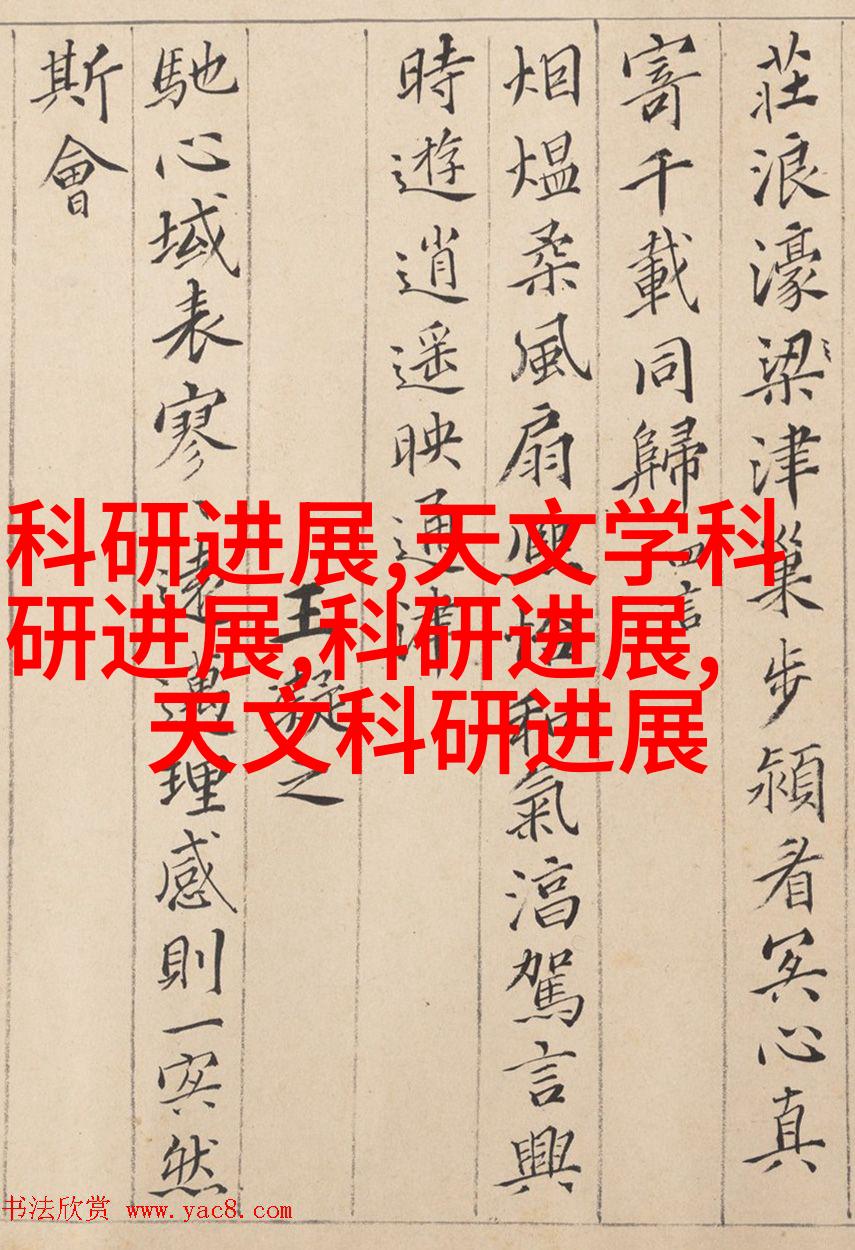 莊浪濠梁津巢步潁冥心真
寄千載同歸 四言
烟熅柔風扇熙怡和氣湻駕言興
時遊逍遥映通津
王凝之
馳心域表寥々遠邁理感則一冥然
斯會
科研进展,天文学科
研进展,科研进展,
天文科研进展
书法欣赏 www.yac8.com